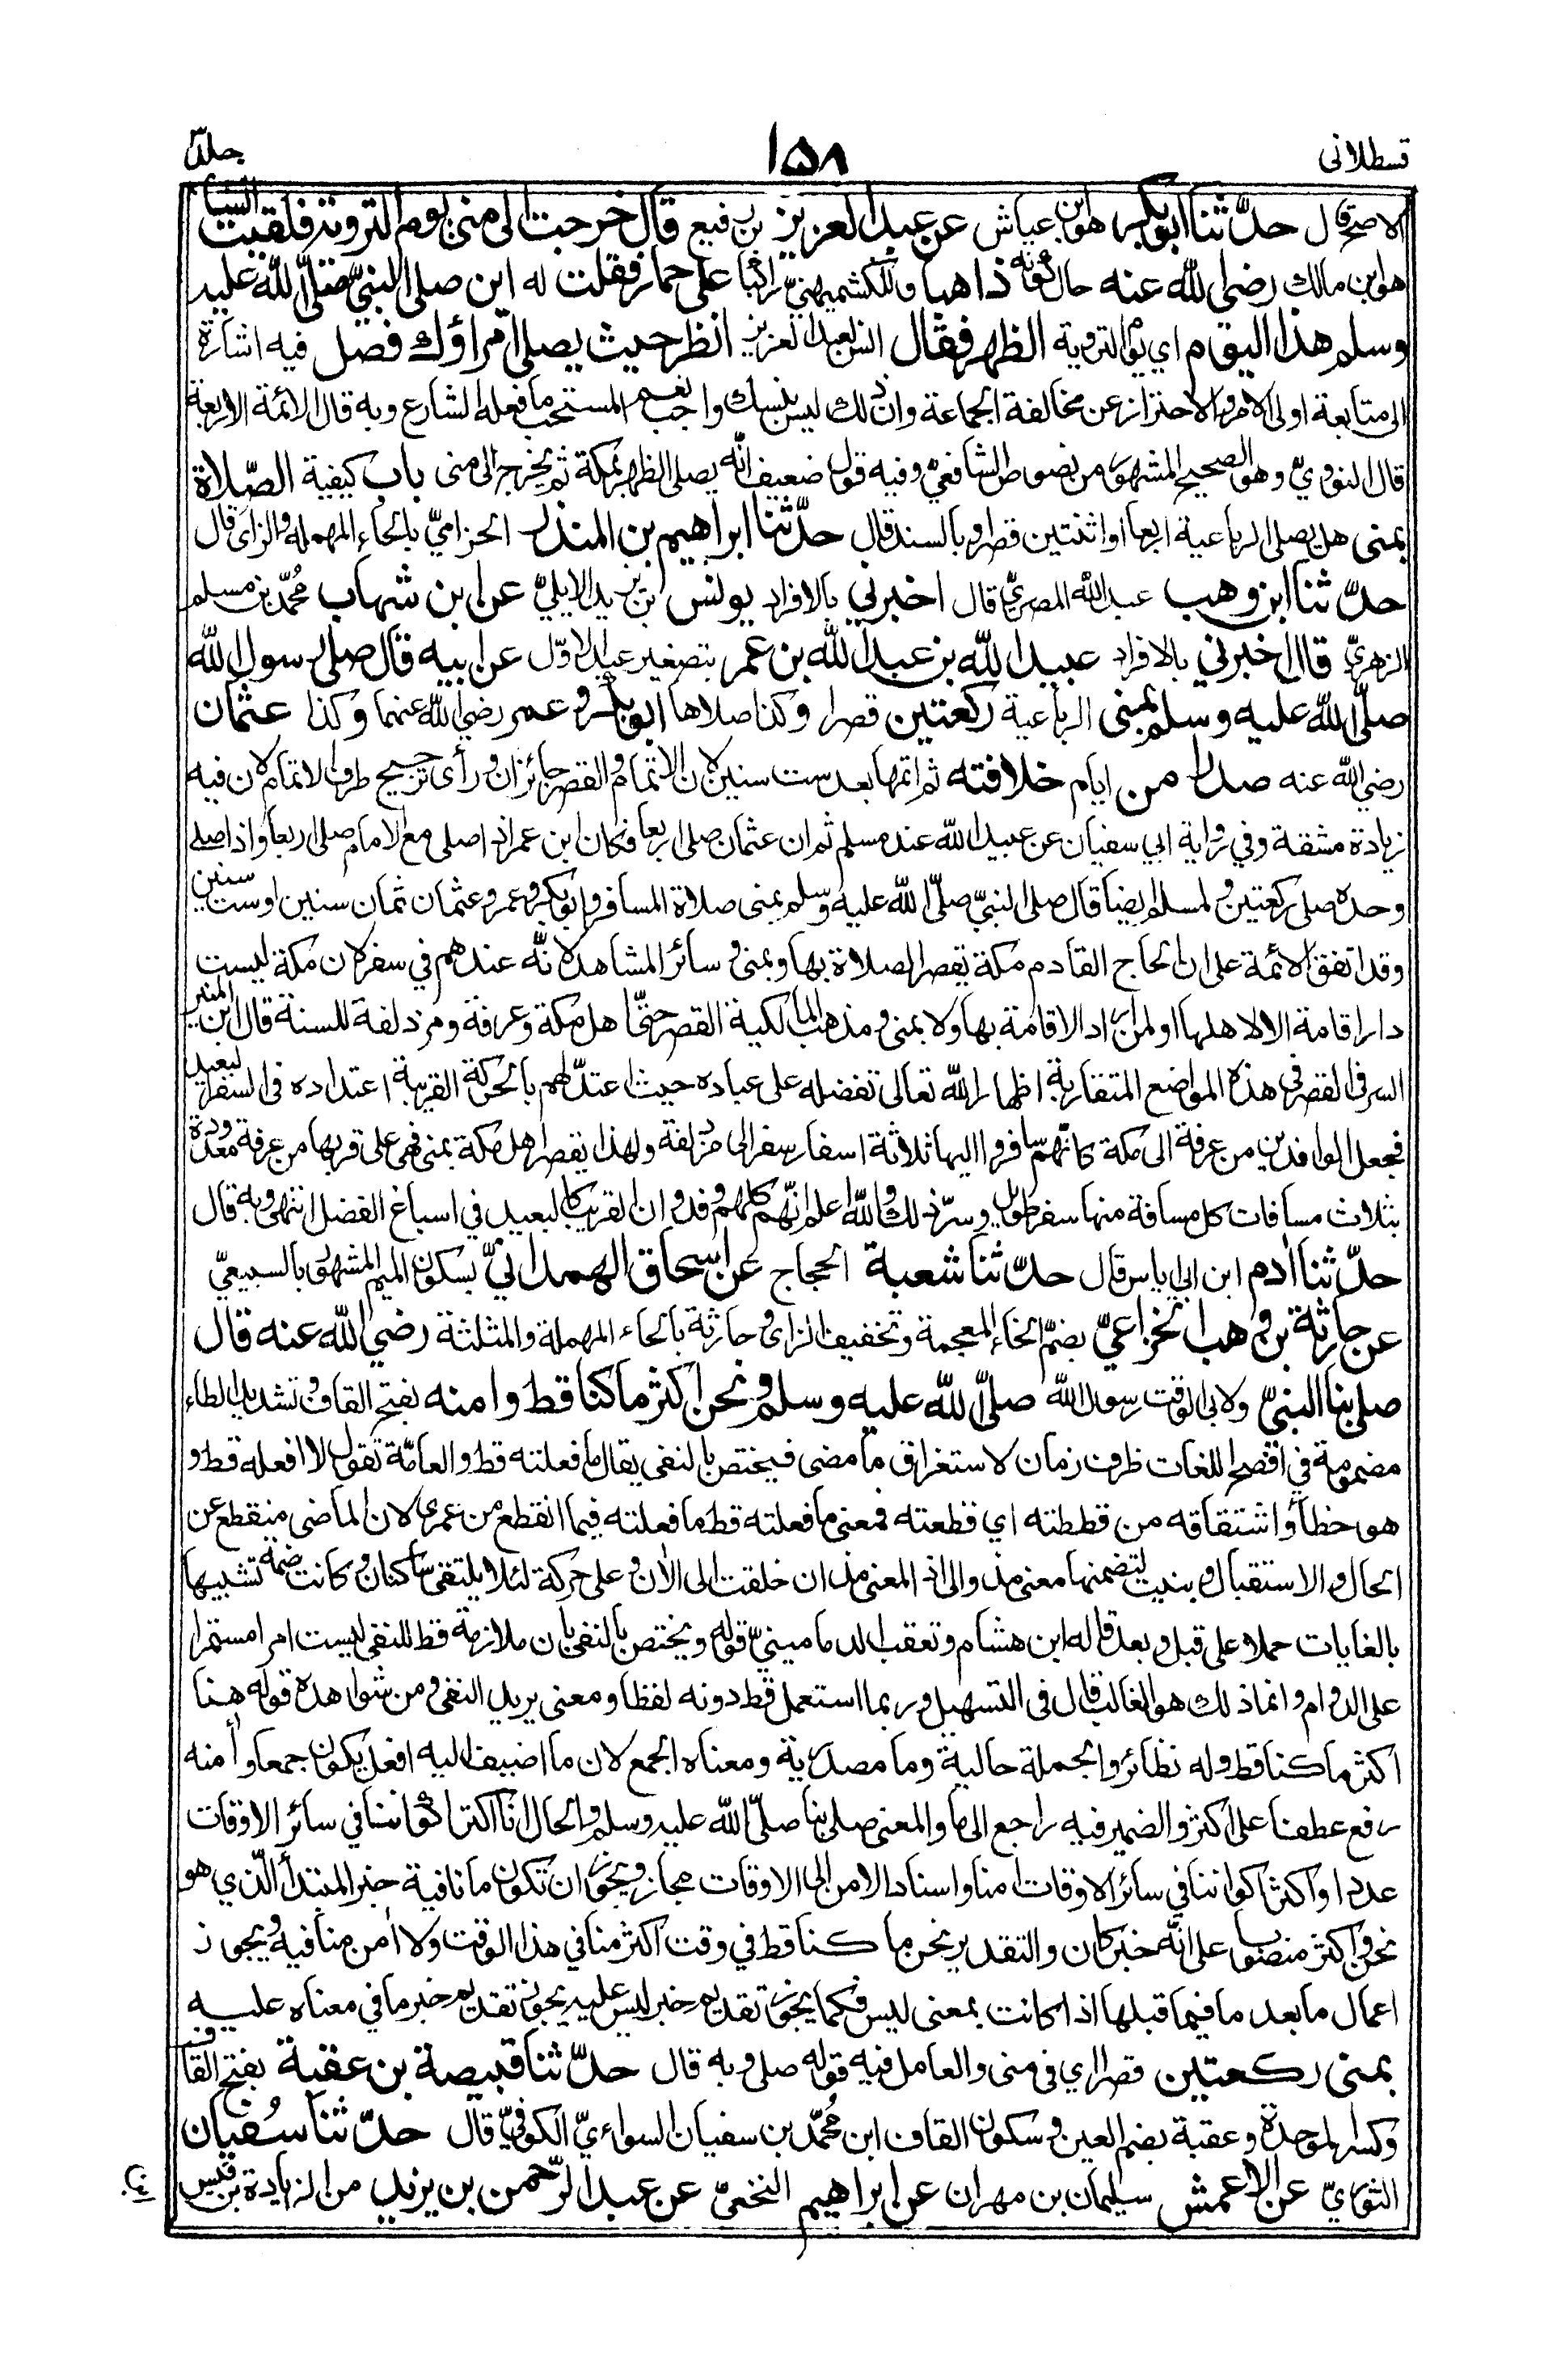 قسطلاني
١٥٨
جلد ٣
الاصح قال حدّثنا ابو بكر هو ابن عياش عن عبد العزيز بن رفيع قال خرجت الى منى يوم التروية فلقيت انسا
هو ابن مالك رضي الله عنه حال كونه ذاهبا وللكشميهنيّ راكبا على حمار فقلت له اين صلى النبيّ صلى الله عليه
وسلم هذا اليوم اي يوم التروية الظهر فقال انس لعبد العزيز انظر حيث يصلي امراؤك فصل فيه اشارة
الى متابعة اولي الامر والاحتراز عن مخالفة الجماعة وان ذلك ليس بنسك واجب نعم المستحب ما فعله الشارع وبه قال الائمة الاربعة
قال النوويّ وهو الصحيح المشهور من نصوص الشافعيّ وفيه قول ضعيف انّه يصلي الظهر بمكة ثم يخرج الى منى باب كيفية الصّلاة
بمنى هل يصلي الرباعية اربعا او اثنتين قصرا وبالسند قال حدّثنا ابراهيم بن المنذر الحزاميّ بالحاء المهملة والزاى قال
حدّثنا ابن وهب عبد الله المصريّ قال اخبرني بالافراد يونس بن يزيد الايليّ عن ابن شهاب محمّد بن مسلم
الزهريّ قال اخبرني بالافراد عبيد الله بن عبد الله بن عمر بتصغير عبد الاوّل عن ابيه قال صلى رسول الله
صلّى الله عليه وسلم بمنى الرباعية ركعتين قصرا وكذا صلاها ابو بكر وعمر رضي الله عنهما وكذا عثمان
رضي الله عنه صدرا من ايام خلافته ثم اتمها بعد ست سنين لان الاتمام والقصر جائزان ورأى ترجيح طرف الاتمام لان فيه
زيادة مشقة وفي رواية ابي سفيان عن عبيد الله عند مسلم ثم ان عثمان صلى اربعا فكان ابن عمر اذا صلى مع الامام صلى اربعا واذا صلى
وحده صلى ركعتين ولمسلم ايضا قال صلى النبيّ صلّى الله عليه وسلم بمنى صلاة المسافر وابو بكر وعمر وعثمان ثمان سنين او ست سنين
وقد اتفق الائمة على ان الحاج القادم مكة يقصر الصلاة بها وبمنى وسائر المشاهد لانّه عندهم في سفر لان مكة ليست
دار اقامة الا لاهلها او لمن اراد الاقامة بها ولا بمنى ومذهب المالكية القصر حتّى اهل مكة وعرفة ومزدلفة للسنة قال ابن المنير
السر فى القصر فى هذه المواضع المتقاربة اظهار الله تعالى تفضله على عباده حيث اعتدّ لهم بالحركة القريبة اعتداده فى السفر البعيد
فجعل الوافدين من عرفة الى مكة كانّهم سافروا اليها ثلاثة اسفار سفر الى مزدلفة ولهذا يقصر اهل مكة بمنى فهي على قربها من عرفة معدودة
بثلاث مسافات كل مسافة منها سفر طويل وسرّ ذلك والله اعلم انّهم كلهم وفد وان القريب كالبعيد في اسباغ الفضل انتهى وبه قال
حدّثنا آدم ابن ابي اياس قال حدّثنا شعبة الحجاج عن ابى اسحاق الهمدانيّ بسكون الميم المشهور بالسبيعيّ
عن حارثة بن وهب الخزاعيّ بضمّ الخاء المعجمة وتخفيف الزاى وحارثة بالحاء المهملة والمثلثة رضي الله عنه قال
صلى بنا النبيّ ولابى الوقت رسول الله صلّى الله عليه وسلم ونحن اكثر ما كنا قط وامنه بفتح القاف وتشديد الطاء
مضمومة في افصح اللغات ظرف زمان لاستغراق ما مضى فيختص بالنفى يقال ما فعلته قط والعامّة تقول لا افعله قط و
هو خطأ واشتقاقه من قططته اي قطعته فمعنى ما فعلته قط ما فعلته فيما انقطع من عمرى لان الماضى منقطع عن
الحال والاستقبال وبنيت لتضمنها معنى مذ والى اذ المعنى مذ ان خلقت الى الآن وعلى حركة لئلا يلتقى ساكنان وكانت ضمة تشبيها
بالغايات حملا على قبل وبعد قاله ابن هشام وتعقب الدمامينيّ قوله ويختص بالنفى بان ملازمة قط للنفى ليست امرا مستمرا
على الدوام وانما ذلك هو الغالب قال فى التسهيل وربما استعمل قط دونه لفظا ومعنى يريد النفى ومن شواهده قوله هنا
اكثر ما كنا قط وله نظائر والجملة حالية وما مصدرية ومعناه الجمع لان ما اضيف اليه افعل يكون جمعا وأمنه
رفع عطفا على اكثر والضمير فيه راجع الى ما والمعنى صلى بنا صلّى الله عليه وسلم والحال انا اكثر اكواننا في سائر الاوقات
عددا واكثر اكواننا في سائر الاوقات امنا واسناد الامن الى الاوقات مجاز ويجوز ان تكون ما نافية خبر المبتدأ الّذي هو
نحن واكثر منصوبا على انّه خبر كان والتقدير نحن ما كنا قط في وقت اكثر منا في هذا الوقت ولا أمن منا فيه ويجوز
اعمال ما بعد ما فيما قبلها اذا كانت بمعنى ليس فكما يجوز تقديم خبر ليس عليه يجوز تقديم خبر ما في معناه عليه
بمنى ركعتين قصرا اي فى منى والعامل فيه قوله صلى وبه قال حدّثنا قبيصة بن عقبة بفتح القاف
وكسر الموحدة وعقبة بضم العين وسكون القاف ابن محمّد بن سفيان السوائيّ الكوفيّ قال حدّثنا سُفيان
الثوريّ عن الاعمش سليمان بن مهران عن ابراهيم النخعيّ عن عبد الرّحمن بن يزيد من الزيادة بن قيس